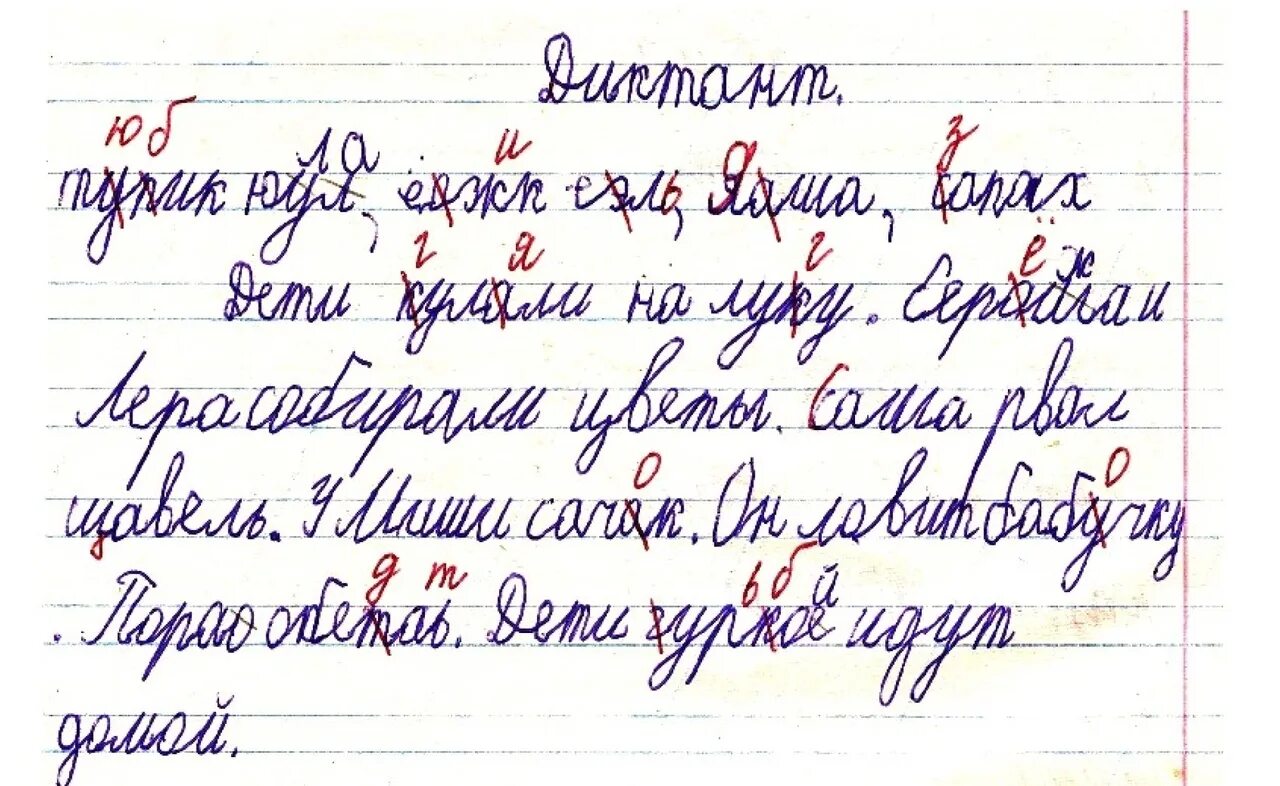 Диктант.
ю б ла и з
тупик юул, еэжк еэль, Яаша, сапах
г я г ё ж
Дети кулали на луку. Серойга и
Лера собирали цветы. Саша рвал
о о
щавель. У Миши сачак. Он ловит бабучку
д т ь б й
. Порао обетаь. Дети гуркое идут
домой.